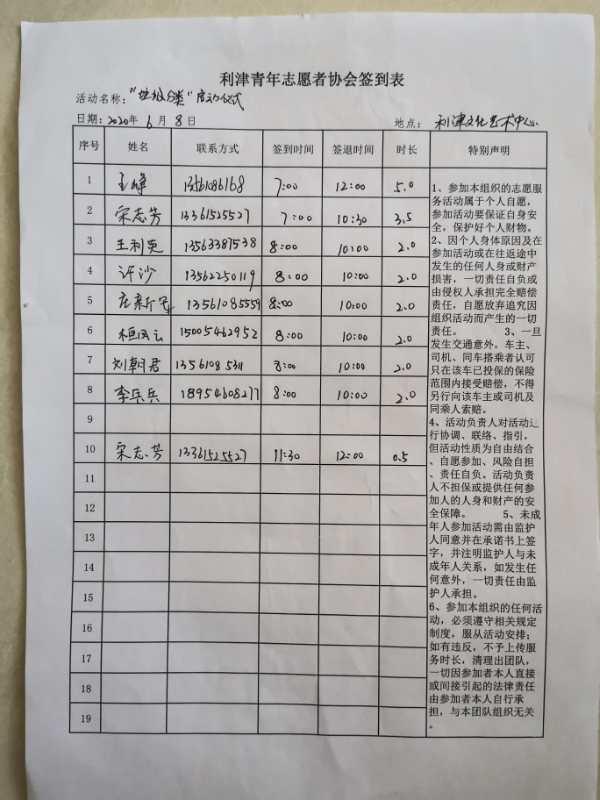 利津青年志愿者协会签到表
活动名称："垃圾分类"启动仪式
日期：2020年 6月 8日 地点：利津文化艺术中心
序号 姓名 联系方式 签到时间 签退时间 时长 特别声明
1 王峰 13561086168 7:00 12:00 5.0
2 宋志芳 13361525527 7:00 10:30 3.5
3 王利英 13563387538 8:00 10:00 2.0
4 许沙 13562250119 8:00 10:00 2.0
5 13561085559 8:00 10:00 2.0
6 15005462952 8:00 10:00 2.0
7 刘朝君 13561085311 8:00 10:00 2.0
8 李乐兵 18954608277 8:00 10:00 2.0
9
10 宋志芳 13361525527 11:30 12:00 0.5
11
12
13
14
15
16
17
18
19
1、参加本组织的志愿服
务活动属于个人自愿，
参加活动要保证自身安
全，保护好个人财物。
2、因个人身体原因及在
参加活动或在往返途中
发生的任何人身或财产
损害，一切责任自负或
由侵权人承担完全赔偿
责任，自愿放弃追究因
组织活动而产生的一切
责任。 3、一旦
发生交通意外，车主、
司机、同车搭乘者认可
只在该车已投保的保险
范围内接受赔偿，不得
另行向该车主或司机及
同乘人索赔。
4、活动负责人对活动进
行协调、联络、指引，
但活动性质为自由结合
、自愿参加、风险自担
、责任自负。活动负责
人不担保或提供任何参
加人的人身和财产的安
全保障。 5、未成
年人参加活动需由监护
人同意并在承诺书上签
字，并注明监护人与未
成年人关系，如发生任
何意外，一切责任由监
护人承担。
6、参加本组织的任何活
动，必须遵守相关规定
制度，服从活动安排；
如有违反，不予上传服
务时长，清理出团队，
一切因参加者本人直接
或间接引起的法律责任
由参加者本人自行承
担，与本团队组织无关
。